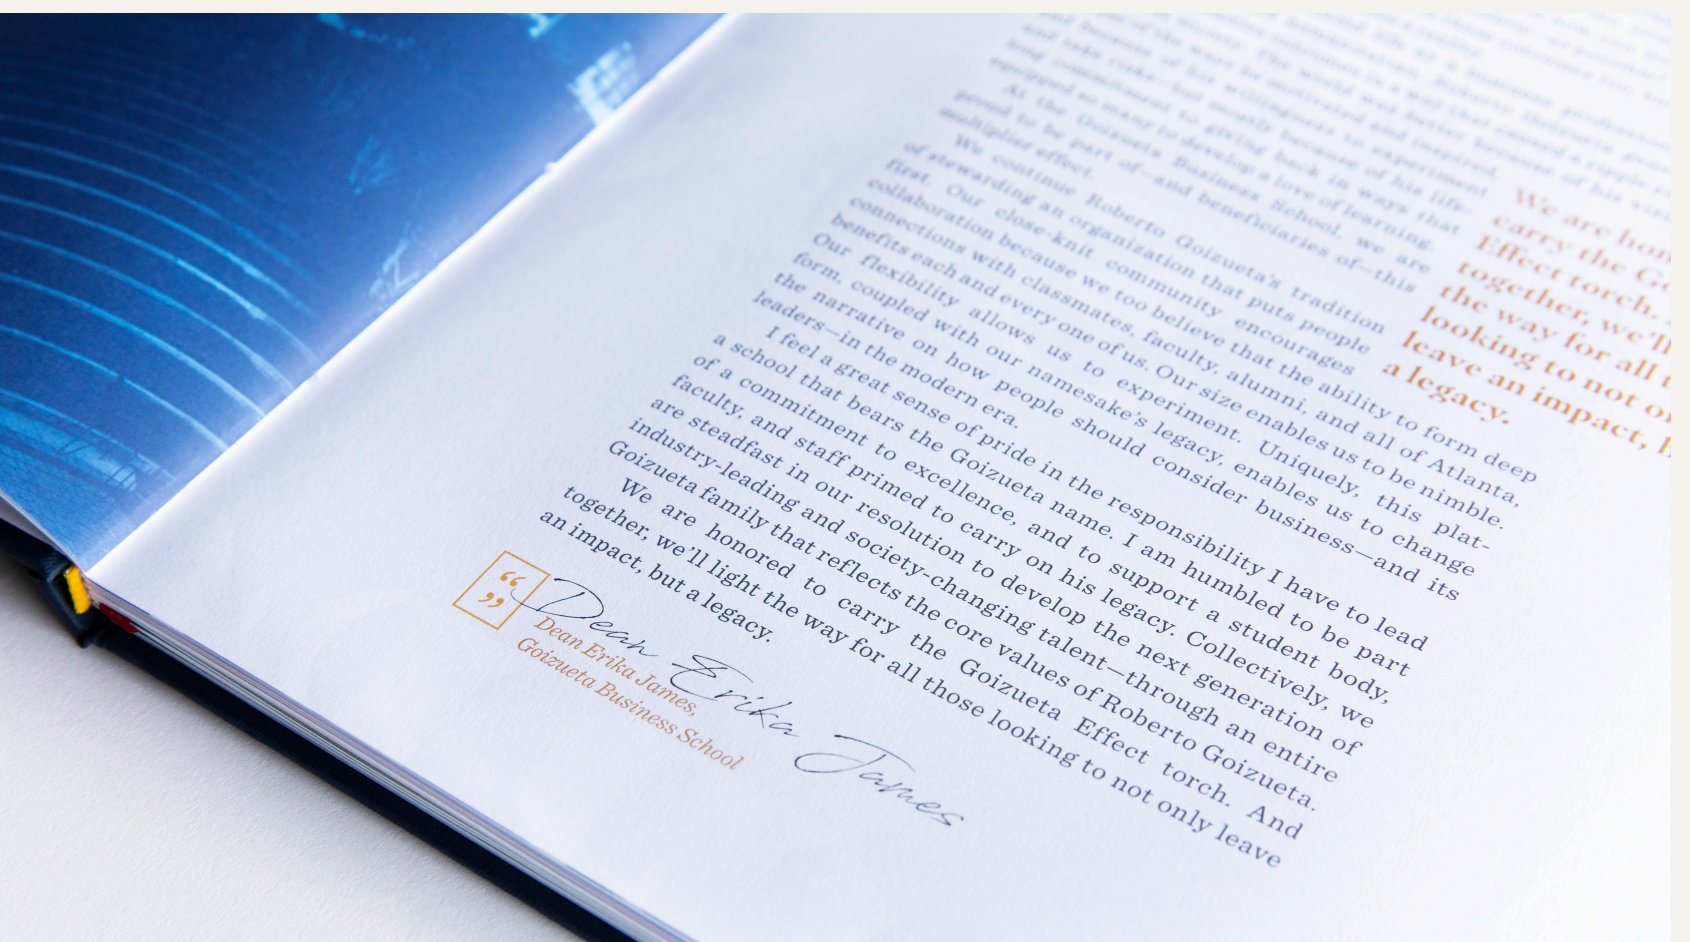 and because of his willingness to experiment
and take risks—but mostly because of his life-
long commitment to giving back in ways that
equipped so many to develop a love of learning.
At the Goizueta Business School, we are
proud to be part of—and beneficiaries of—this
multiplier effect.
We continue Roberto Goizueta's tradition
of stewarding an organization that puts people
first. Our close-knit community encourages
collaboration because we too believe that the ability to form deep
connections with classmates, faculty, alumni, and all of Atlanta,
benefits each and every one of us. Our size enables us to be nimble.
Our flexibility allows us to experiment. Uniquely, this plat-
form, coupled with our namesake's legacy, enables us to change
the narrative on how people should consider business—and its
leaders—in the modern era.
I feel a great sense of pride in the responsibility I have to lead
a school that bears the Goizueta name. I am humbled to be part
of a commitment to excellence, and to support a student body,
faculty, and staff primed to carry on his legacy. Collectively, we
are steadfast in our resolution to develop the next generation of
industry-leading and society-changing talent—through an entire
Goizueta family that reflects the core values of Roberto Goizueta.
We are honored to carry the Goizueta Effect torch. And
together, we'll light the way for all those looking to not only leave
an impact, but a legacy.
“ ”
Dean Erika James
Dean Erika James,
Goizueta Business School
We are hon
carry the Go
Effect torch.
together, we'll
the way for all t
looking to not o
leave an impact, b
a legacy.